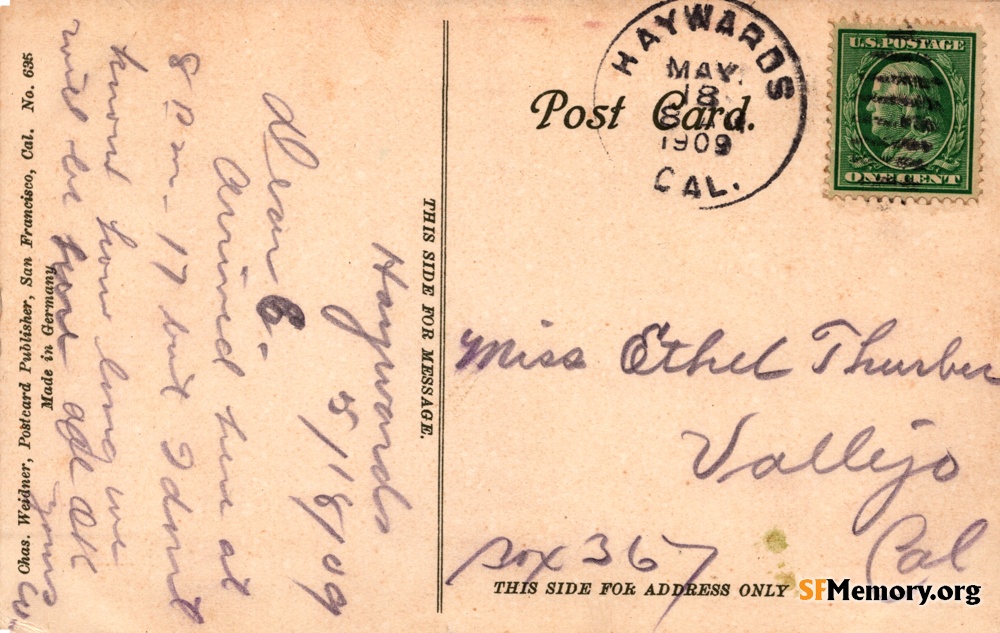 HAYWARDS
MAY.
18
1909
CAL.
U.S. POSTAGE
ONE CENT
Post Card.
THIS SIDE FOR MESSAGE.
Haywards
5/18/09
Dear E.
Arrived here at
8 P m - 17 but I dont
know how long we
will be here all OK
yours
Miss Ethel Thurber
Vallejo
Box 367
Cal
THIS SIDE FOR ADDRESS ONLY
Chas. Weidner, Postcard Publisher, San Francisco, Cal. No. 635
Made in Germany
SFMemory.org